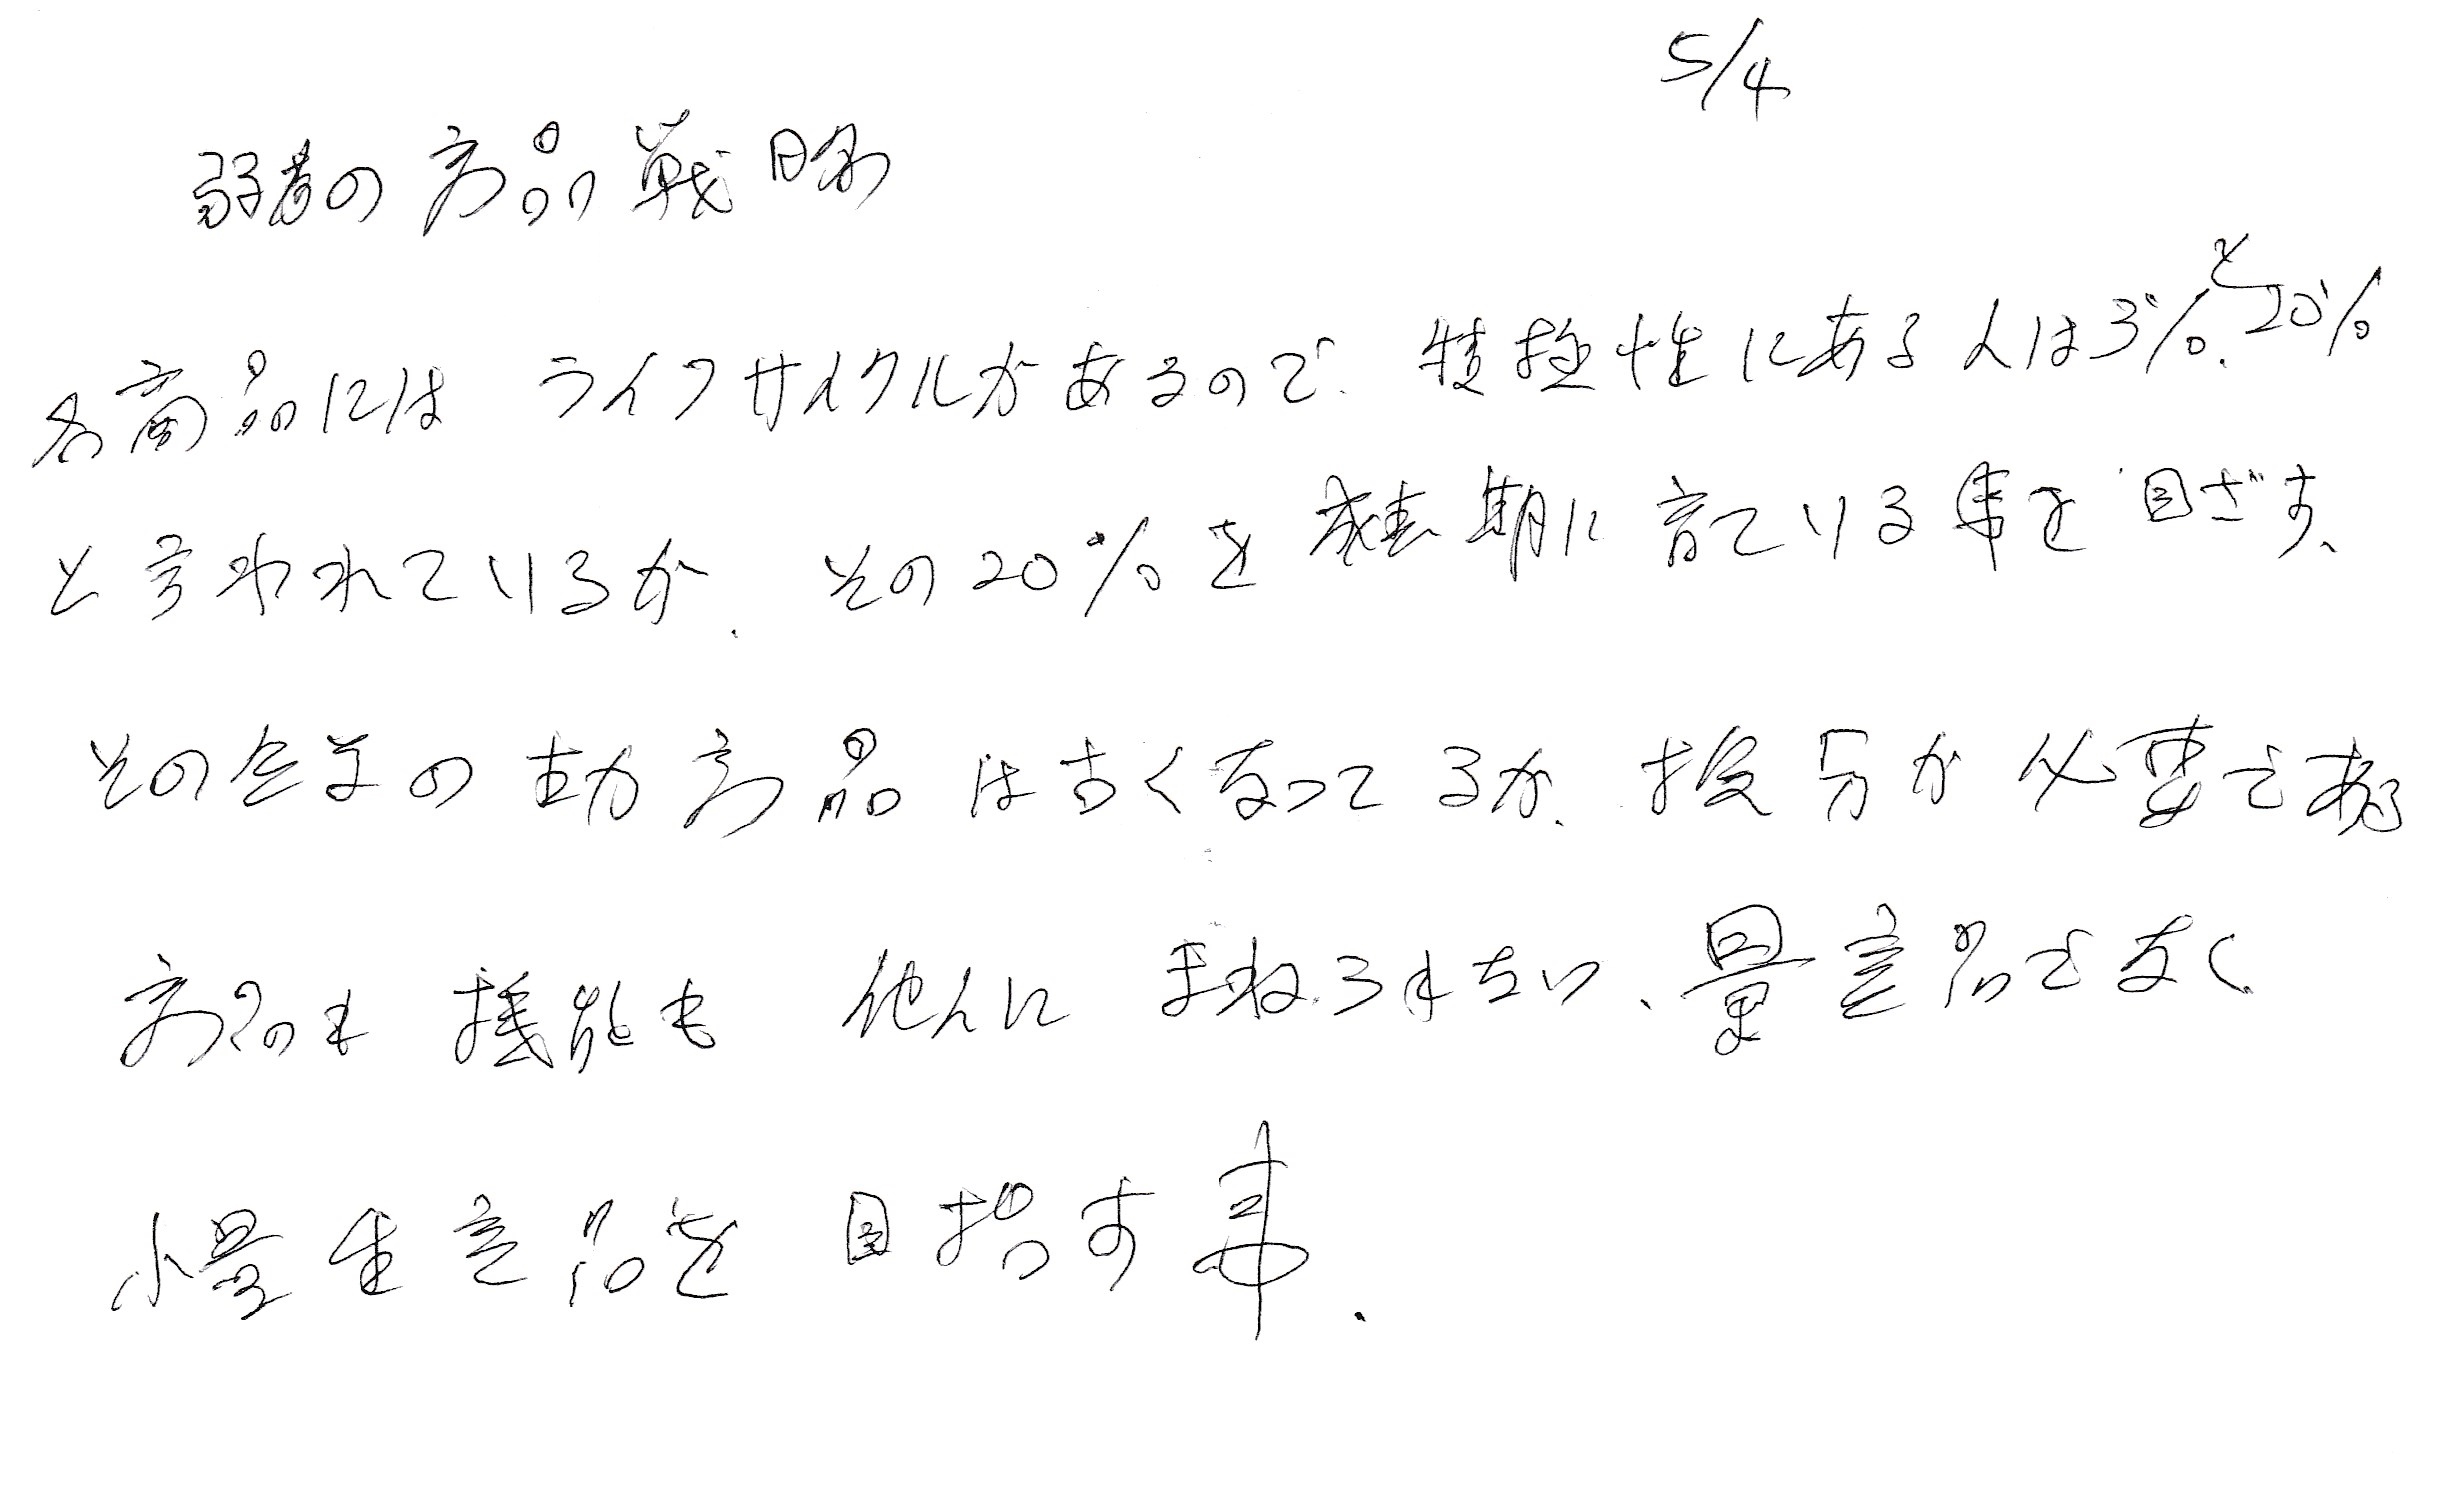 5/4
弱者の商品戦略
各商品にはライフサイクルがあるので、積極性にある人は3%と20%
と言われているが、その20%を 期に育ている事を目ざす、
その企業の主力商品は古くなってるが、 が必要である
商品も機能も他人にまねられない、量産品でなく
小量生産品を目指す事.